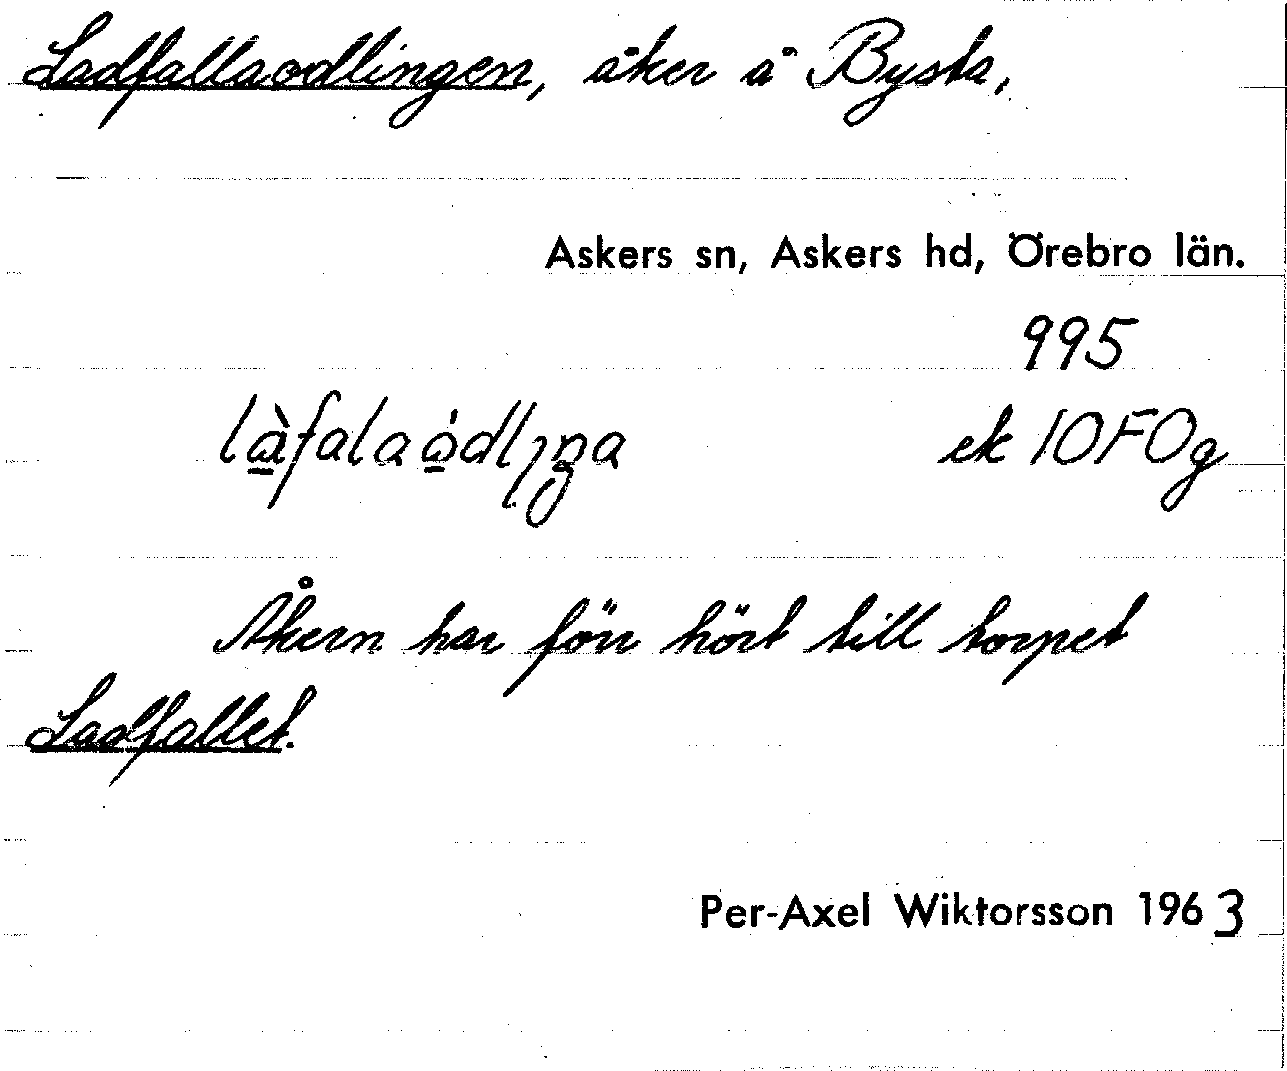 Ladfallaodlingen, åker å Bysta,
Askers sn, Askers hd, Örebro län.
995
ek 10FOg
Åkern har förr hört till torpet
Ladfallet.
Per-Axel Wiktorsson 1963